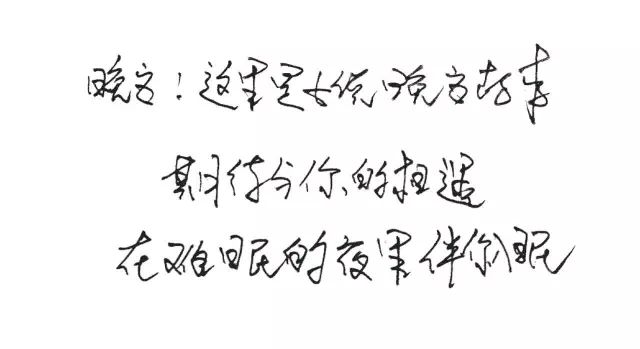 晚安！这里是晚安故事
期待与你的相遇
在难眠的夜里伴你入眠